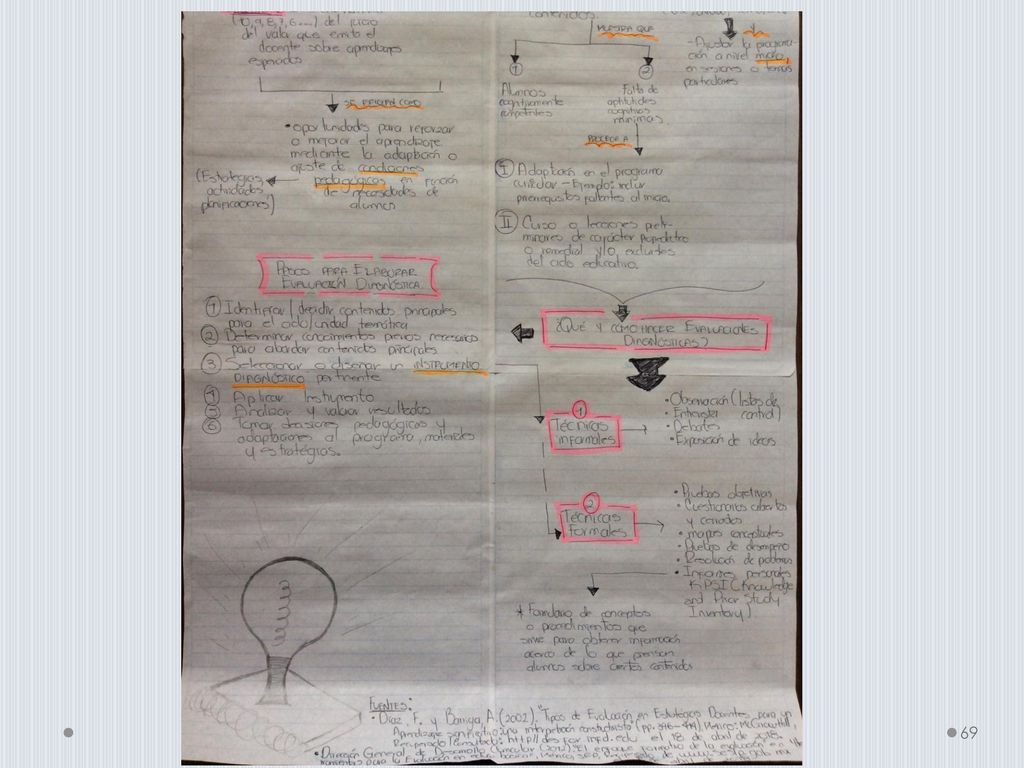 (10,9,8,7,6...) del juicio
de valor que emite el
docente sobre aprendizajes
esperados
SE PERCIBEN COMO
• oportunidades para reforzar
o mejorar el aprendizaje
mediante la adaptación o
ajuste de condiciones
pedagógicas en función
de necesidades de
alumnos
(Estrategias,
actividades
planificaciones)
PARA ELABORAR
EVALUACIÓN DIAGNÓSTICA
① Identificar / decidir contenidos principales
para el ciclo/unidad temática
② Determinar conocimientos previos necesarios
para abordar contenidos principales
③ Seleccionar o diseñar un INSTRUMENTO
DIAGNÓSTICO pertinente
Aplicar Instrumento
Analizar y valorar resultados
⑥ Tomar decisiones pedagógicas y
adaptaciones al programa, materiales
y estrategias.
contenidos
MUESTRA QUE
①
Alumnos
cognitivamente
competentes
②
Falta de
aptitudes
cognitivas
mínimas
PROCEDE A
Ⅰ Adaptación en el programa
curricular – Ejemplo: incluir
prerrequisitos faltantes al inicio.
Ⅱ Curso o lecciones preli-
minares de carácter propedéutico
o remedial y/o excluirlos
del ciclo educativo.
Y
- Ajustar la programa-
ción a nivel micro,
en sesiones o temas
particulares
¿QUÉ Y CÓMO HACER EVALUACIONES
DIAGNÓSTICAS?
①
Técnicas
informales
• Observación (listas de
• Entrevistas control)
• Debates
• Exposición de ideas
②
Técnicas
formales
• Pruebas objetivas
• Cuestionarios abiertos
y cerrados
• mapas conceptuales
• Pruebas de desempeño
• Resolución de problemas
• Informes personales
KPSI (Knowledge
and Prior Study
Inventory)
* Formulario de conceptos
o procedimientos que
sirve para obtener información
acerca de lo que piensan
alumnos sobre ciertos contenidos
FUENTES:
• Díaz, F. y Barriga, A. (2002). "Tipos de Evaluación en Estrategias Docentes para un
Aprendizaje significativo: una interpretación constructivista (pp. 396- México: McGrawHill.
el 18 de abril de 2018.
• Dirección General de Desarrollo Curricular (2012). El enfoque formativo de la evaluación en
para la Evaluación en educación básica, México: SEP,
69